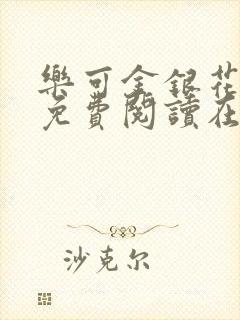 樂可金銀花
免費閱讀在
沙克尔